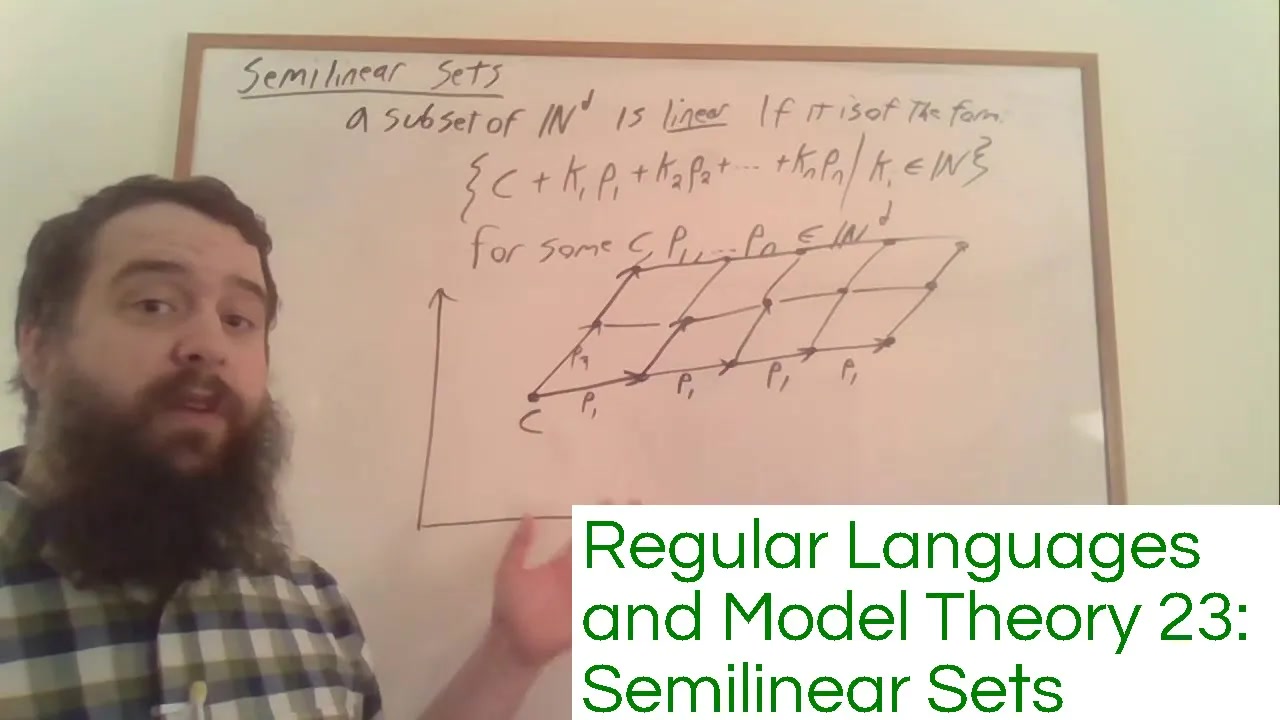 Semilinear Sets
a subset of ℕᵈ is linear If it is of the form.
{C + k₁P₁ + k₂P₂ + ... + kₙPₙ | kᵢ ∈ ℕ}
for some C, P₁, ... Pₙ ∈ ℕᵈ
P₂
P₁ P₁ P₁ P₁
C
Regular Languages
and Model Theory 23:
Semilinear Sets